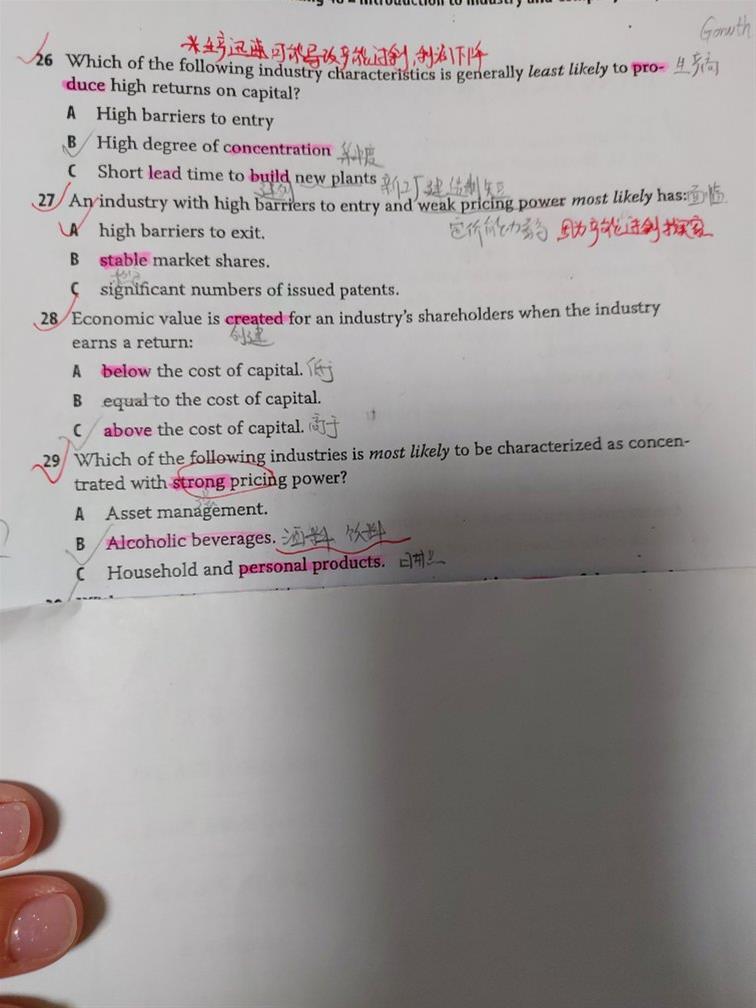 Introduction to Industry and
Gorwth
※生产迅速可能导致产能过剩,利润下降
26 Which of the following industry characteristics is generally least likely to pro-
duce high returns on capital?
A High barriers to entry
B High degree of concentration 集中度
C Short lead time to build new plants 新工厂建
27 An industry with high barriers to entry and weak pricing power most likely has: 面临
定价能力弱 因为产能过剩
A high barriers to exit.
B stable market shares.
稳定
C significant numbers of issued patents.
28 Economic value is created for an industry's shareholders when the industry
创建
earns a return:
A below the cost of capital. 低于
B equal to the cost of capital.
C above the cost of capital. 高于
29 Which of the following industries is most likely to be characterized as concen-
trated with strong pricing power?
强
A Asset management.
B Alcoholic beverages. 酒料 饮料
C Household and personal products.